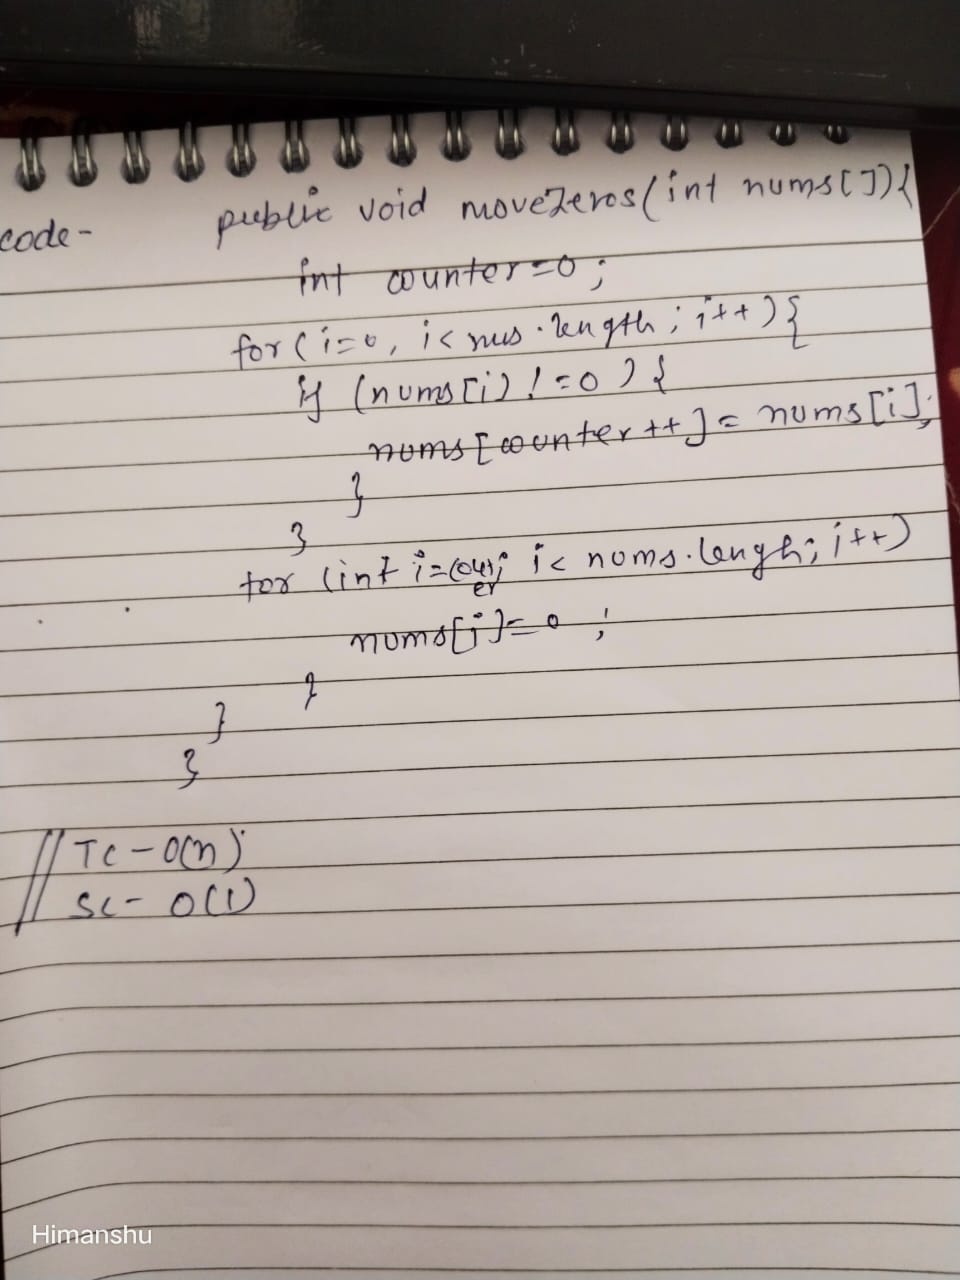 code- public void moveZeros(int nums[]){
int counter=0;
for(i=0, i< nus.length; i++){
if (nums[i]!=0){
nums[counter++]= nums[i];
}
}
for (int i=counter; i< nums.lengh; i++)
nums[i]=0;
}
}
}
// TC - O(n)
SC- O(1)
Himanshu